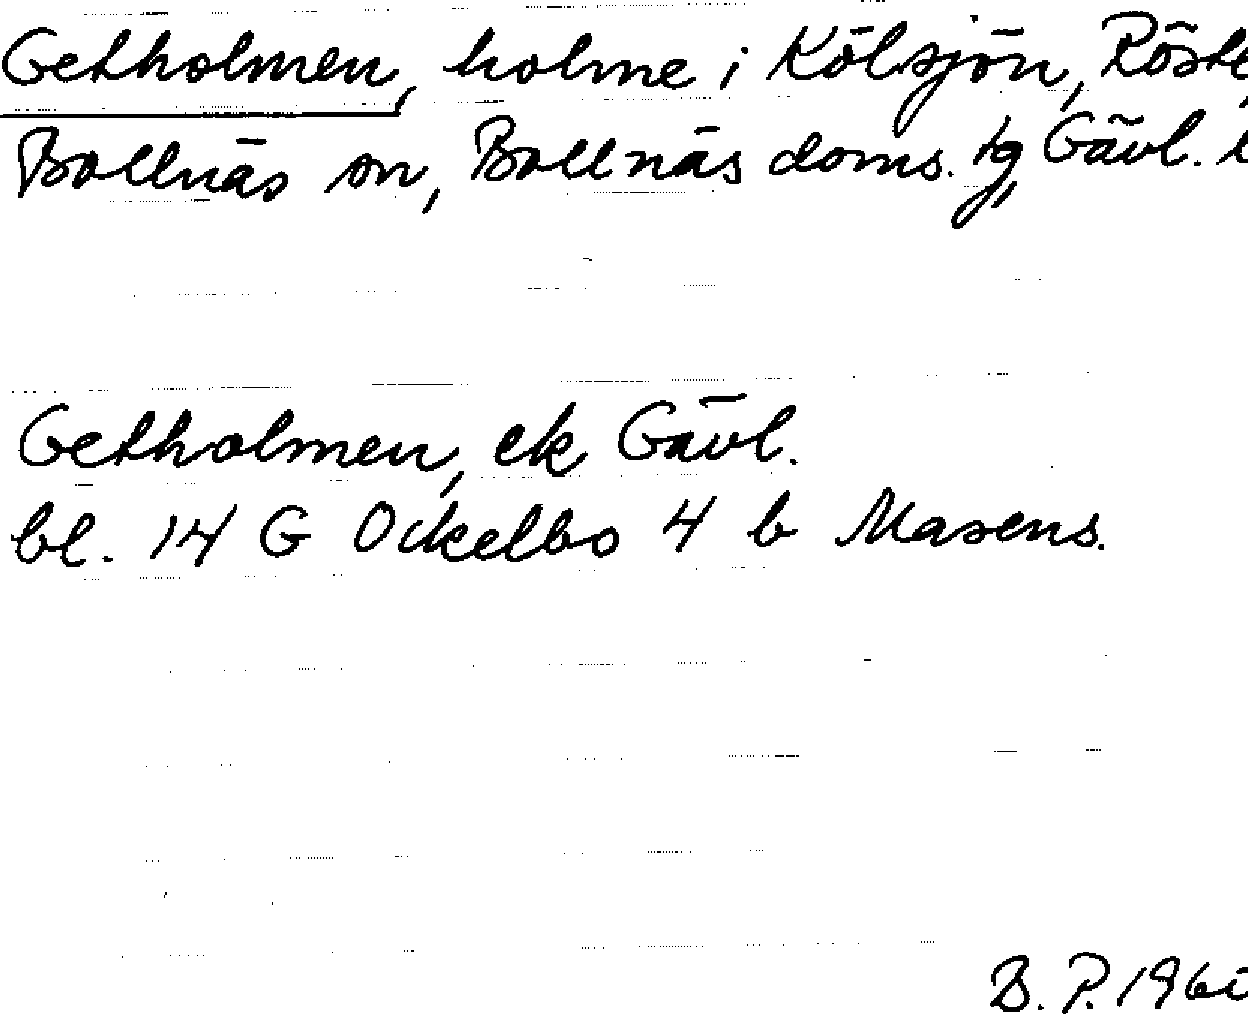 Getholmen, holme i Kölsjön, Röste,
Bollnäs sn, Bollnäs doms. tg, Gävl. l
Getholmen, ek Gävl.
bl. 14 G Ockelbo 4 b Masens.
B. P. 196